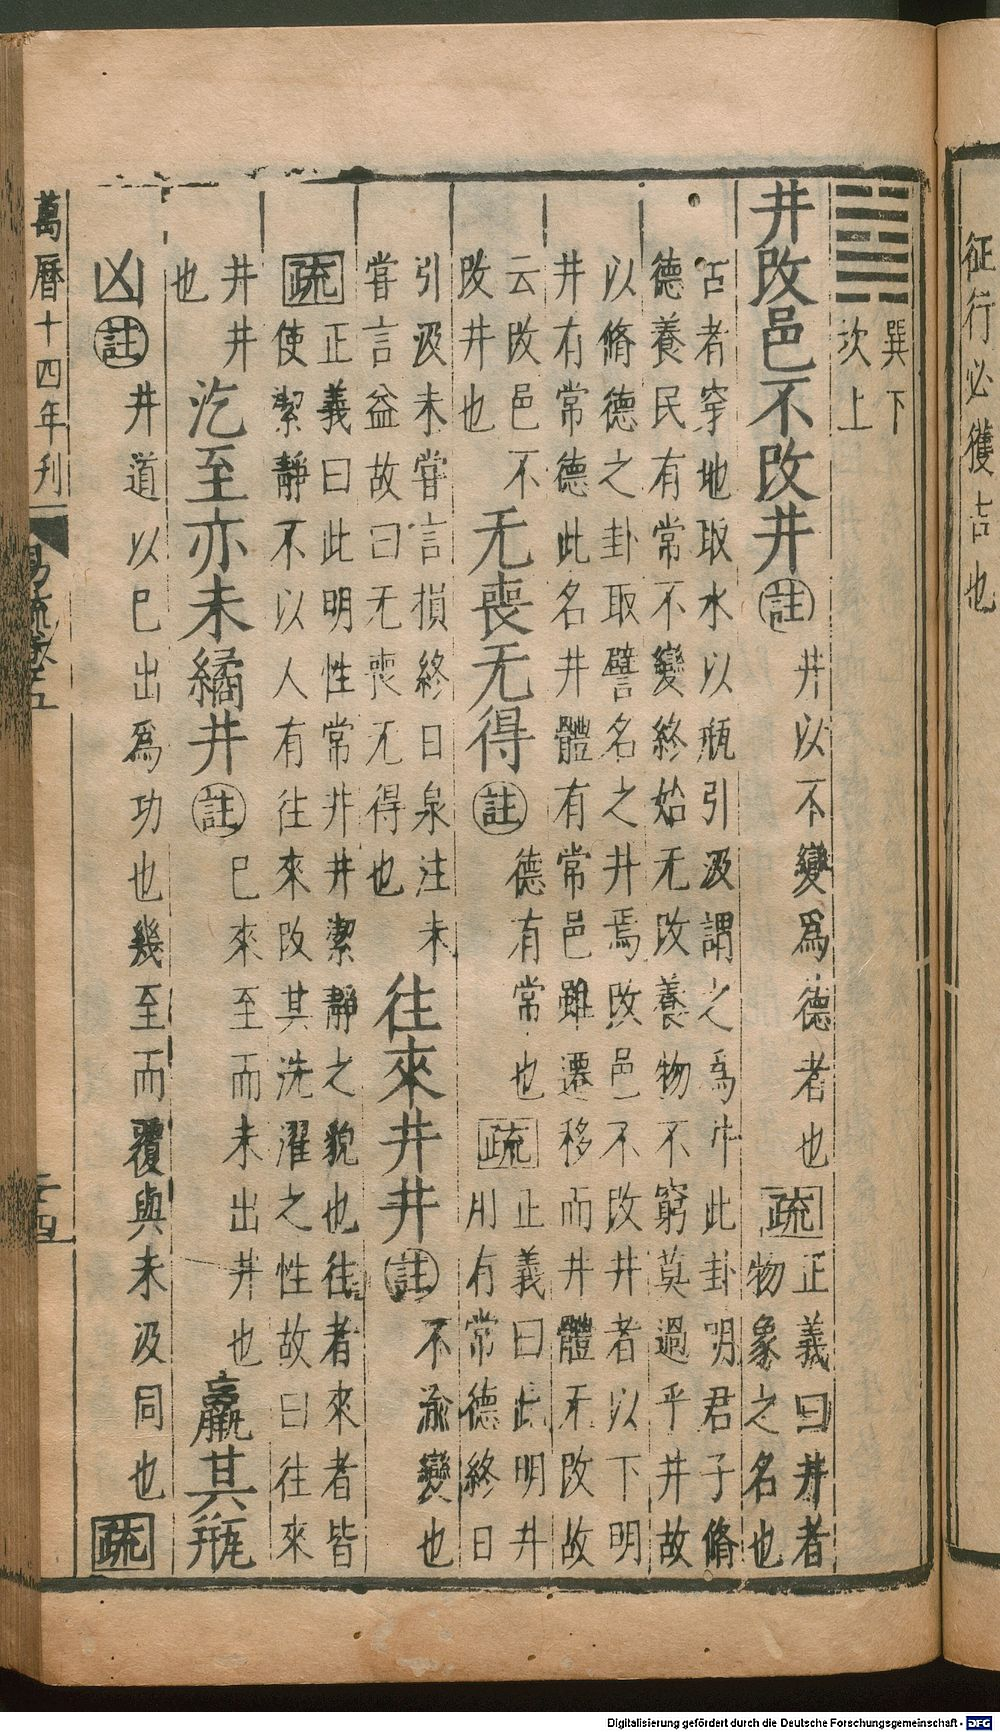 征行必獲吉也
巽下
坎上
井改邑不改井
註
井以不變爲德者也
疏
正義曰井者
物象之名也
古者穿地取水以瓶引汲謂之爲井此卦明君子脩
德養民有常不變終始无改養物不窮莫過乎井故
以脩德之卦取譬名之井焉改邑不改井者以下明
井有常德此名井體有常邑雖遷移而井體无改故
云改邑不
改井也
无喪无得
註
德有常也
疏
正義曰此明井
用有常德終日
引汲未嘗言損終日泉注未
嘗言益故曰无喪无得也
往來井井
註
不渝變也
疏
正義曰此明性常井井潔靜之貌也往者來者皆
使潔靜不以人有往來改其洗濯之性故曰往來
井井
也
汔至亦未繘井
註
已來至而未出井也
羸其瓶
凶
註
井道以已出爲功也幾至而覆與未汲同也
疏
萬曆十四年刊
易疏卷五
Digitalisierung gefördert durch die Deutsche Forschungsgemeinschaft - DFG